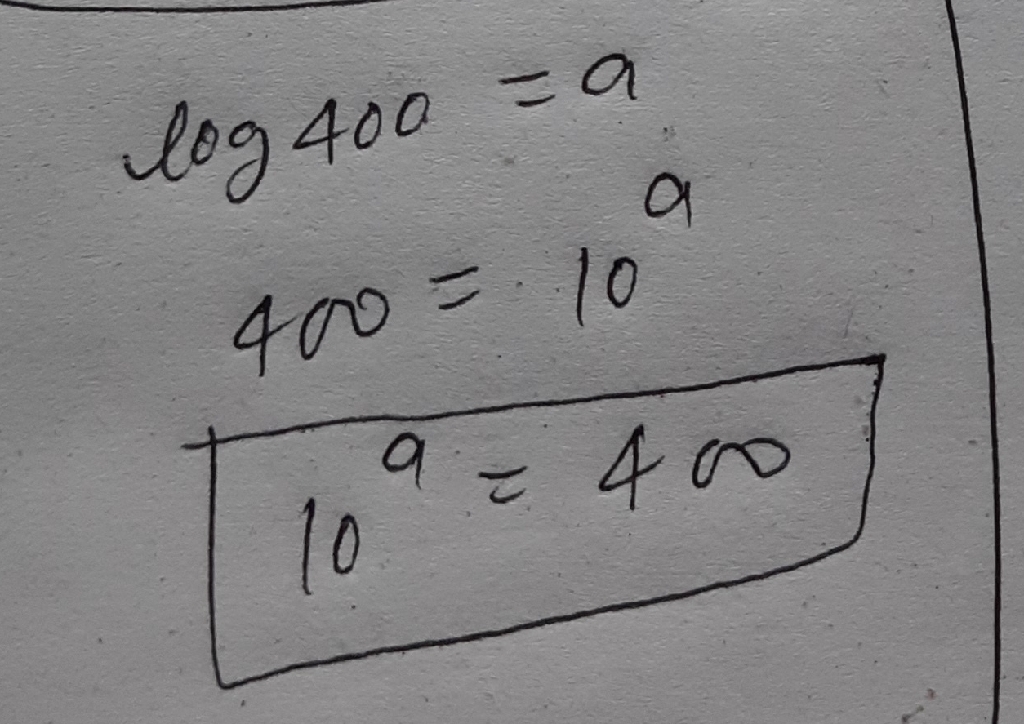 log 400 = a
400 = 10^a
10^a = 400